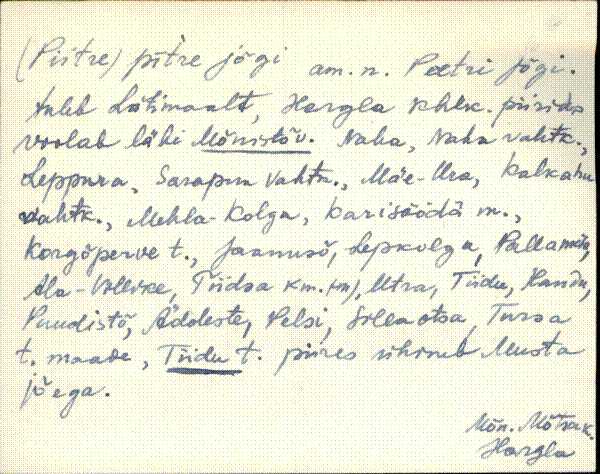 (Piitre) pitre jõgi am. n. Peetri jõgi.
tuleb Lätimaalt, Hargla khlk. piirides
voolab läbi Mõnistõv. Naha, Naha vahtk.,
Leppura, Sarapuu vahtk., Mäe-Ura, Kalkahu
vahtk., Mehla-Kolga, Karisöödä m.,
Korgõperve t., Jaanusõ, Lepkolga, Pallamõtsa,
Ala-Villike, Tiidsa Km. , Utra, Tiidu,
Puudistõ, Äddleste, Velsi, Sillaotsa, Tursa
t. maade, Tiidu t. piires ühineb Musta
jõega.
Mõn. Mõtsak.
Hargla